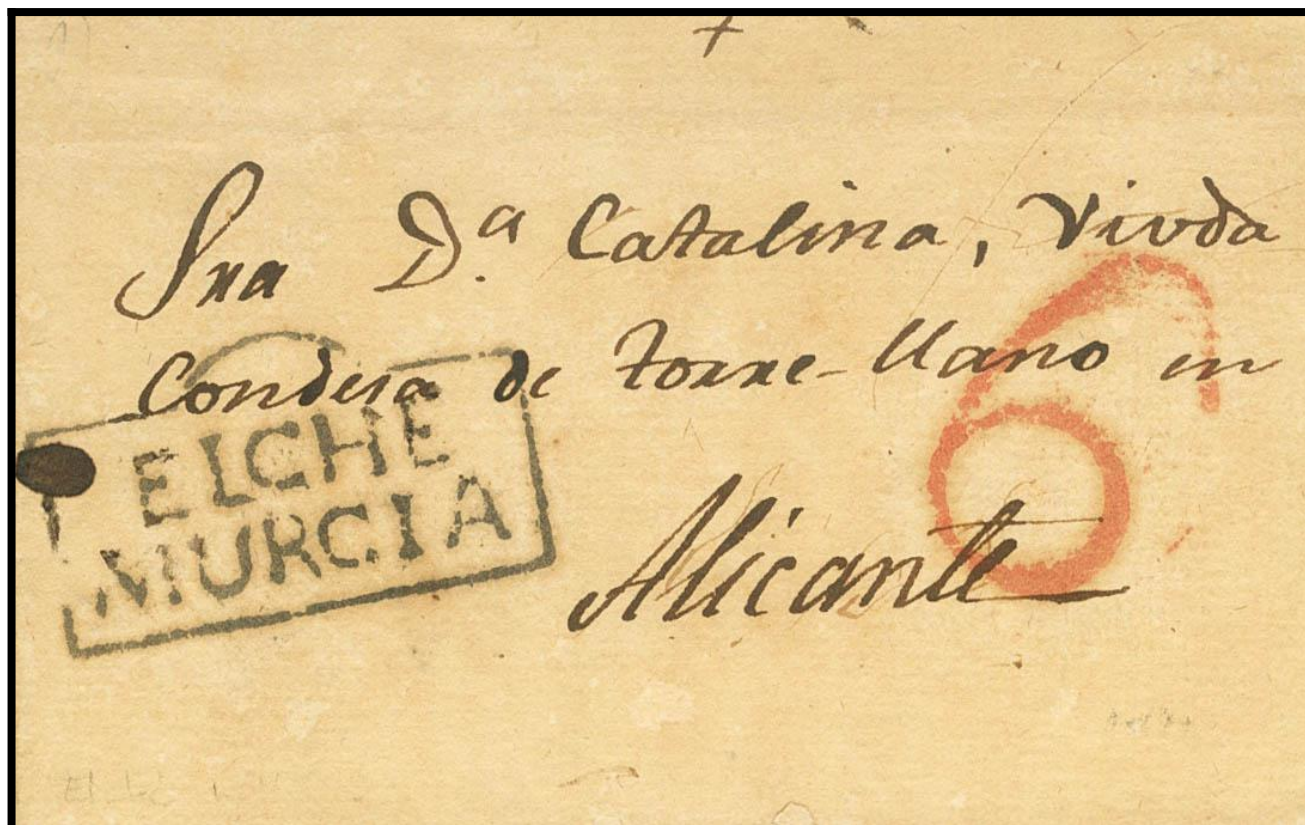 Sra D.ª Catalina, Viuda
Condesa de Torre-llano en
Alicante
ELCHE
MURCIA
6